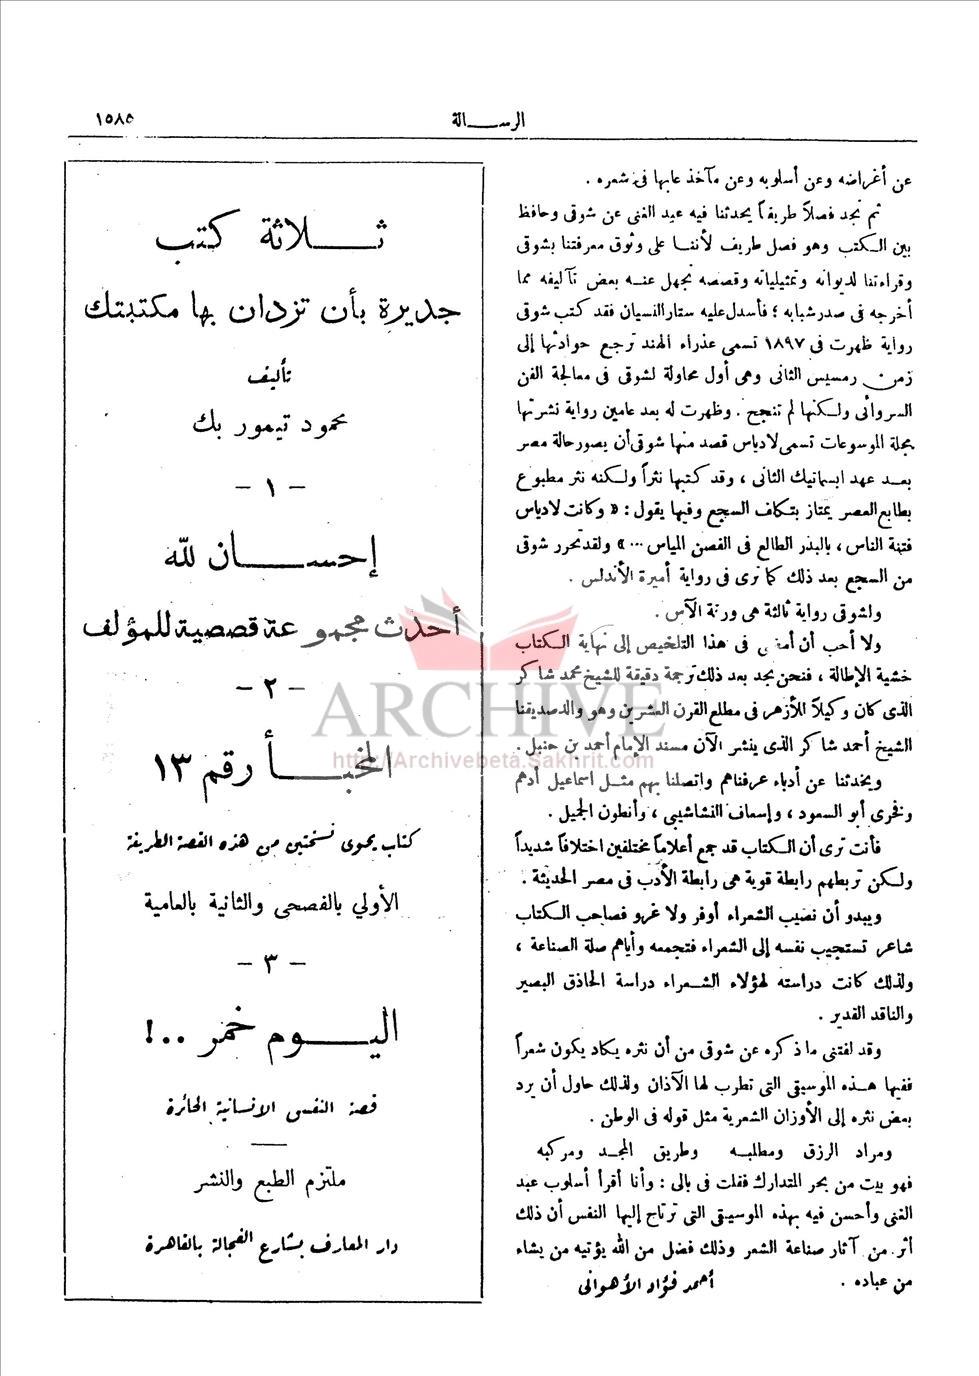 الرسالة
١٥٨٥
عن أغراضه وعن أسلوبه وعن مآخذ عابها فى شعره .
ثم نجد فصلاً طريفاً يحدثنا فيه عبد الغنى عن شوقى وحافظ
بين الكتب وهو فصل طريف لأننا على وثوق معرفتنا بشوقى
وقراءتنا لديوانه وتمثيلياته وقصصه نجهل عنه بعض تآليفه مما
أخرجه فى صدر شبابه ؛ فأسدل عليه ستار النسيان فقد كتب شوقى
رواية ظهرت فى ١٨٩٧ تسمى عذراء الهند ترجع حوادثها إلى
زمن رمسيس الثانى وهى أول محاولة لشوقى فى معالجة الفن
السروائى ولكنها لم تنجح . وظهرت له بعد عامين رواية نشرتها
مجلة الموسوعات تسمى لادياس قصد منها شوقى أن يصور حالة مصر
بعد عهد ابسماتيك الثانى ، وقد كتبها نثراً ولكنه نثر مطبوع
بطابع العصر يمتاز بتكلف السجع وفيها يقول : « وكانت لادياس
فتنة الناس ، بالبدر الطالع فى الغصن المياس ... » ولقد تحرر شوقى
من السجع بعد ذلك كما ترى فى رواية أميرة الأندلس .
ولشوقى رواية ثالثة هى ورقة الآس .
ولا أحب أن أمضى فى هذا التلخيص إلى نهاية الكتاب
خشية الإطالة ، فنحن نجد بعد ذلك ترجمة دقيقة للشيخ محمد شاكر
الذى كان وكيلاً للأزهر فى مطلع القرن العشرين وهو والد صديقنا
الشيخ أحمد شاكر الذى ينشر الآن مسند الإمام أحمد بن حنبل .
ويحدثنا عن أدباء عرفناهم واتصلنا بهم مثل اسماعيل أدهم
وفخرى أبو السعود ، وإسعاف النشاشيبى ، وأنطون الجميل .
فأنت ترى أن الكتاب قد جمع أعلاماً مختلفين اختلافاً شديداً
ولكن تربطهم رابطة قوية هى رابطة الأدب فى مصر الحديثة .
ويبدو أن نصيب الشعراء أوفر ولا غرو فصاحب الكتاب
شاعر تستجيب نفسه إلى الشعراء فتجمعه وأياهم صلة الصناعة ،
ولذلك كانت دراسته لهؤلاء الشعراء دراسة الحاذق البصير
والناقد القدير .
وقد لفتنى ما ذكره عن شوقى من أن نثره يكاد يكون شعراً
ففيها هذه الموسيقى التى تطرب لها الآذان ولذلك حاول أن يرد
بعض نثره إلى الأوزان الشعرية مثل قوله فى الوطن .
ومراد الرزق ومطلبه وطريق المجد ومركبه
فهو بيت من بحر المتدارك فقلت فى بالى : وأنا أقرأ أسلوب عبد
الغنى وأحسن فيه بهذه الموسيقى التى ترتاح إليها النفس أن ذلك
أثر من آثار صناعة الشعر وذلك فضل من الله يؤتيه من يشاء
من عباده .
أحمد فؤاد الأهوانى
ثلاثة كتب
جديرة بأن تزدان بها مكتبتك
تأليف
محمود تيمور بك
- ١ -
إحسان لله
أحدث مجموعة قصصية للمؤلف
- ٢ -
المخبأ رقم ١٣
كتاب يحوى نسختين من هذه القصة الطريفة
الأولي بالفصحى والثانية بالعامية
- ٣ -
اليوم خمر ..!
قصة النفس الانسانية الحائرة
ملتزم الطبع والنشر
دار المعارف بشارع الفجالة بالقاهرة
ARCHIVE
http://Archivebeta.Sakhrit.com